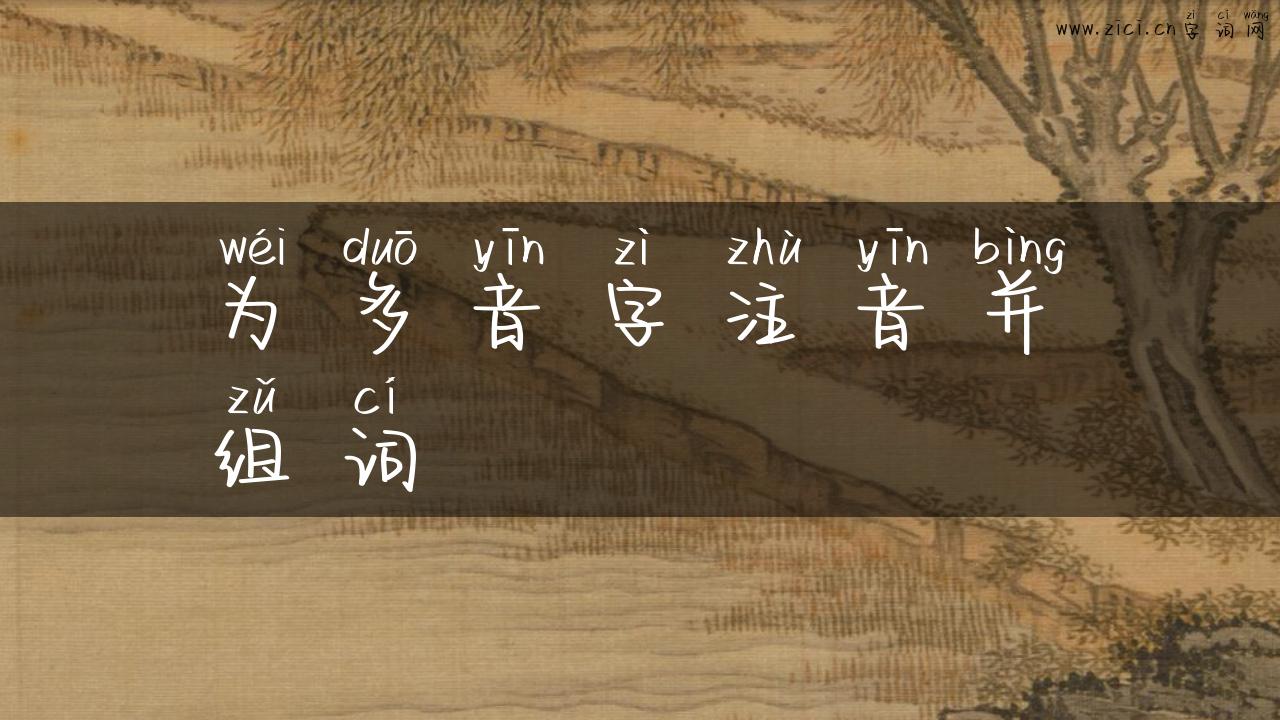 zì cí wǎng
www.zici.cn字词网
wéi duō yīn zì zhù yīn bìng
为多音字注音并
zǔ cí
组词